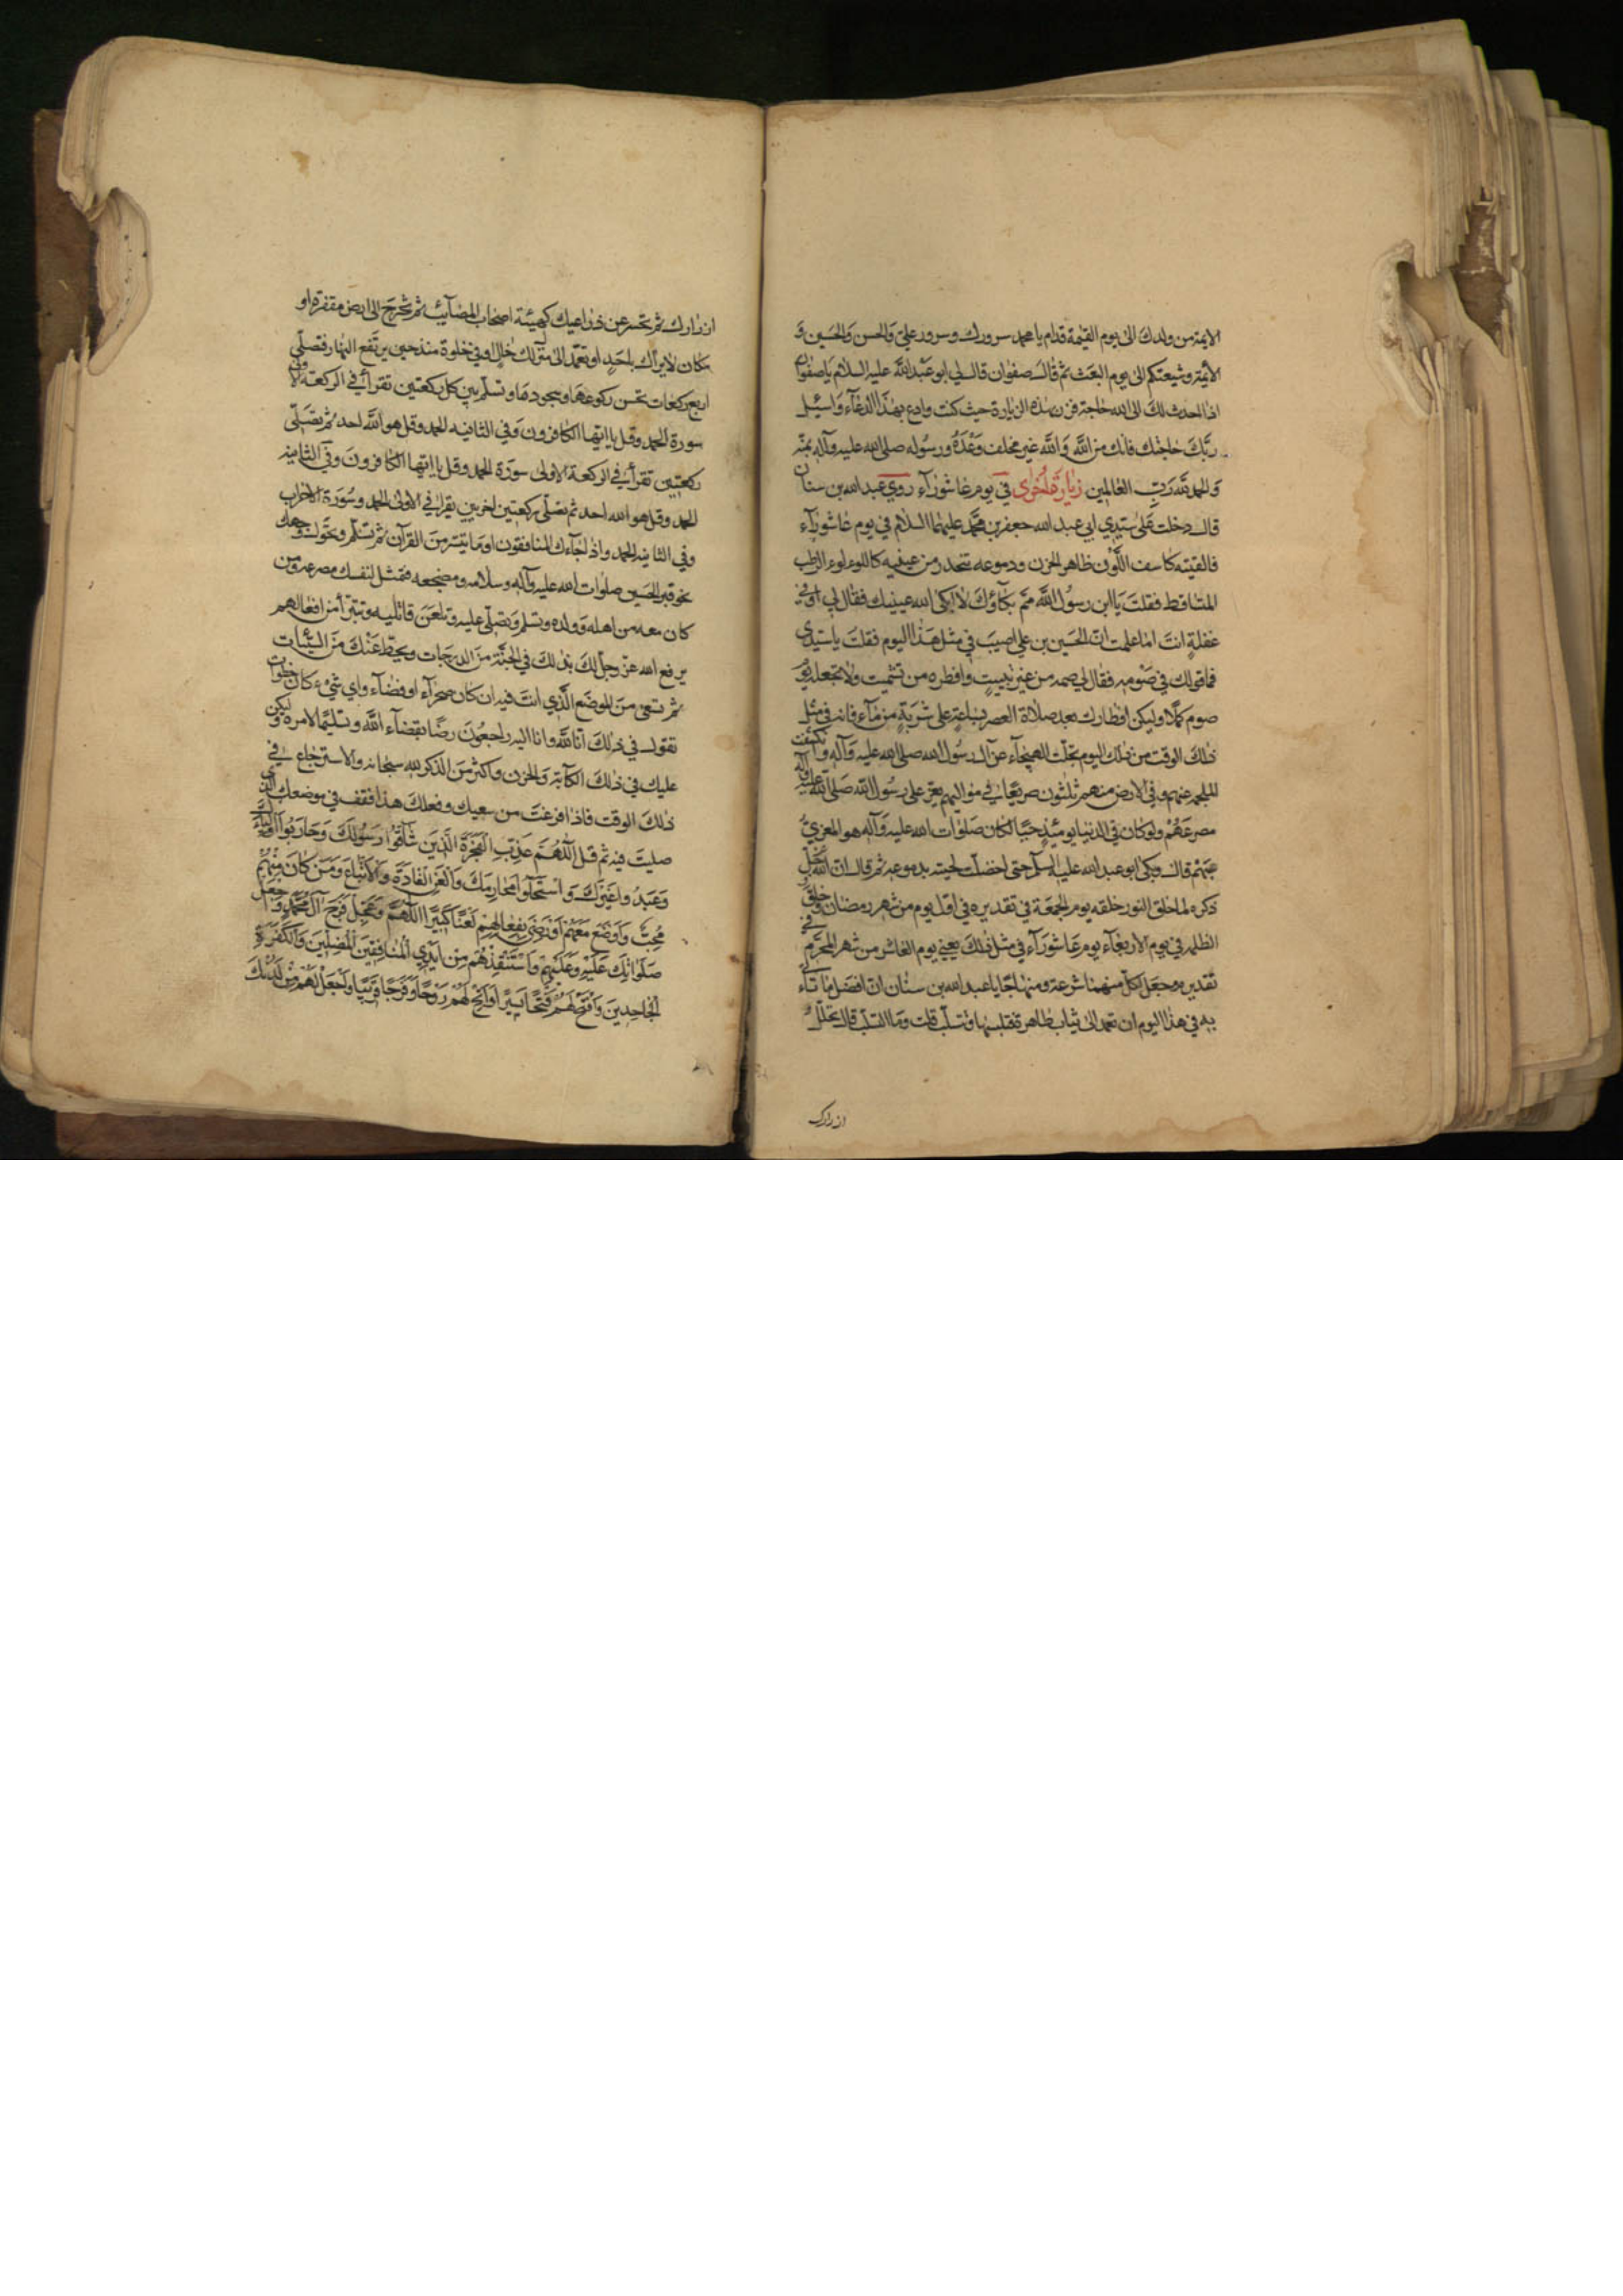 الائمة من ولدك الى يوم القيمة قدام يا محمد سرورك وسرور علي والحسن والحسين و
الأئمة وشيعتكم الى يوم البعث ثم قال صفوان قال لي ابو عبد الله عليه السلام يا صفوان
اذا حدث لك الى الله حاجة فزر بهذه الزيارة حيث كنت وادع بهذا الدعاء واسئل
ربك حاجتك فانك من الله والله غير مخلف وعده ورسوله صلى الله عليه وآله بمنه
والحمد لله رب العالمين زيارة اخرى في يوم عاشورآء روي عبد الله بن سنان
قال دخلت على سيدي ابي عبد الله جعفر بن محمد عليهما السلام في يوم عاشورآء
فالقيته كاسف اللون ظاهر الحزن ودموعه تنحدر من عينيه كاللوءلوء الرطب
المتساقط فقلت يا ابن رسول الله مم بكاؤك لا ابكى الله عينيك فقال لي اوفي
غفلة انت اما علمت ان الحسين بن علي اصيب في مثل هذا اليوم فقلت يا سيدي
فما قولك في صومه فقال لي صمه من غير تبييت وافطره من غير تشميت ولا تجعله يوم
صوم كملا وليكن افطارك بعد صلاة العصر بساعة على شربة من مآء فانه في مثل
ذلك الوقت من ذلك اليوم تجلت الهيجآء عن آل رسول الله صلى الله عليه وآله وانكشفت
الملحمة عنهم وفي الارض منهم ثلثون صريعا في مواليهم يعز على رسول الله صلى الله عليه وآله
مصرعهم ولو كان في الدنيا يومئذ حيا لكان صلوات الله عليه وآله هو المعزي
عنهم قال وبكى ابو عبد الله عليه السلم حتى اخضلت لحيته بدموعه ثم قال ان الله جل
ذكره لما خلق النور خلقه يوم الجمعة في تقديره في اول يوم من شهر رمضان وخلق
الظلمة في يوم الاربعآء يوم عاشورآء في مثل ذلك يعني يوم العاشر من شهر المحرم في
تقديره وجعل لكل منهما شرعة ومنهاجا يا عبد الله بن سنان ان افضل ما تأتي
به في هذا اليوم ان تعمد الى ثياب طاهرة فتلبسها وتتسلب قلت وما التسلب قال تحلل
ازرارك
ازرارك ثم تحسر عن ذراعيك كهيئة اصحاب المصآئب ثم تخرج الى ارض مقفرة او
مكان لا يراك به احد او تعمد الى منزل لك خال او في خلوة منذ حين يرتفع النهار فتصلي
اربع ركعات تحسن ركوعها وسجودها وتسلم بين كل ركعتين تقرأ في الركعة الاولى
سورة الحمد وقل يا ايها الكافرون وفي الثانيه الحمد وقل هو الله احد ثم تصلي
ركعتين تقرأ في الركعة الاولى سورة الحمد وقل يا ايها الكافرون وفي الثانية
الحمد وقل هو الله احد ثم تصلي ركعتين اخريين يقرا في الاولى الحمد وسورة الاحزاب
وفي الثانيه الحمد واذا جآءك المنافقون او ما تيسر من القرآن ثم تسلم وتحول وجهك
نحو قبر الحسين صلوات الله عليه وآله وسلامه ومضجعه فتمثل لنفسك مصرعه ومن
كان معه من اهله وولده وتسلم وتصلي عليه وتلعن قاتليه وتتبرأ من افعالهم
يرفع الله عز وجل لك بذلك في الجنة من الدرجات ويحط عنك من السيئات
ثم تسعى من الموضع الذي انت فيه ان كان صحرآء او فضآء واي شيء كان خطوات
تقول في ذلك انا لله وانا اليه راجعون رضا بقضآء الله وتسليما لامره وليكن
عليك في ذلك الكآبة والحزن واكثر من الذكر لله سبحانه والاسترجاع في
ذلك الوقت فاذا فرغت من سعيك وفعلك هذا فقف في موضعك الذي
صليت فيه ثم قل اللهم عذب الفجرة الذين شاقوا رسولك وحاربوا اوليآءك
وعبدوا غيرك واستحلوا محارمك والعن القادة والاتباع ومن كان منهم
محبا واوضع معهم او رضى بفعالهم لعنا كثيرا اللهم وعجل فرج آل محمد واجعل
صلواتك عليه وعليهم واستنقذهم من ايدي المنافقين المضلين والكفرة
الجاحدين وافتح لهم فتحا يسيرا واتح لهم روحا وفرجا قريبا واجعل لهم من لدنك